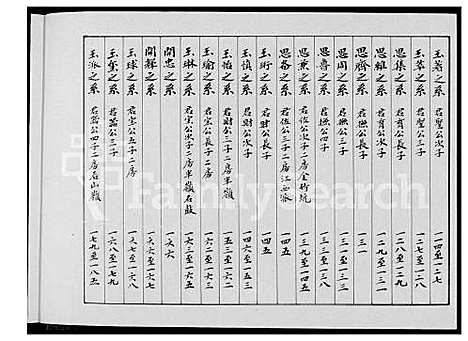 玉若之系 君聖公次子 一一四至一二七
玉恭之系 君聖公三子 一二七至一二八
思集之系 君育公長子 一二八至一二九
思維之系 君育公次子
思齊之系 君撫公長子 一三一
思周之系 君撫公三子
思喜之系 君撫公四子
思兼之系 君佐公次子二房金街坑 一三九至一四五
思吝之系 君佐公三子二房江西派 一四五
玉衍之系 君財公長子 一四五
玉慎之系 君財公次子 一四六至一五三
玉怡之系 君財公三子二房半嶺 一五三至一六二
玉瑜之系 君定公長子 一六二至一六三
玉琳之系 君定公次子二房半嶺石鼓 一六三至一六五
開忠之系 一六六
開釋之系 一六六至一六七
玉球之系 君定公五子二房 一六七至一六八
玉奎之系 君器公三子 一六八至一七九
玉派之系 君器公四子二房石山嶺 一七九至一八五
FamilySearch